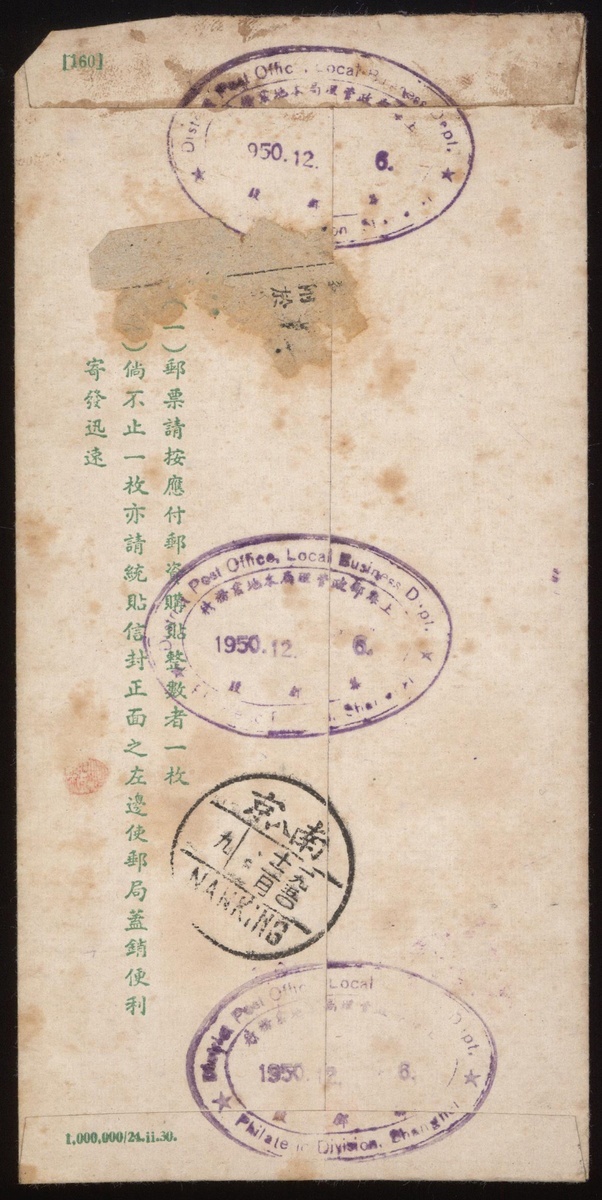 [160]
District Post Office, Local Business Dept.
上 郵政管理局本地業務
950.12. 6.
(一)郵票請按應付郵資購貼整數者一枚
)倘不止一枚亦請統貼信封正面之左邊使郵局蓋銷便利
寄發迅速
District Post Office, Local Business Dept.
上海郵政管理局本地業務科
1950.12. 6.
集郵股
南京
八
九
十二月
NANKING
District Post Office, Local Dept.
1950.12 6.
郵
Philatelic Division, Shanghai
1,000,000/24.ii.30.